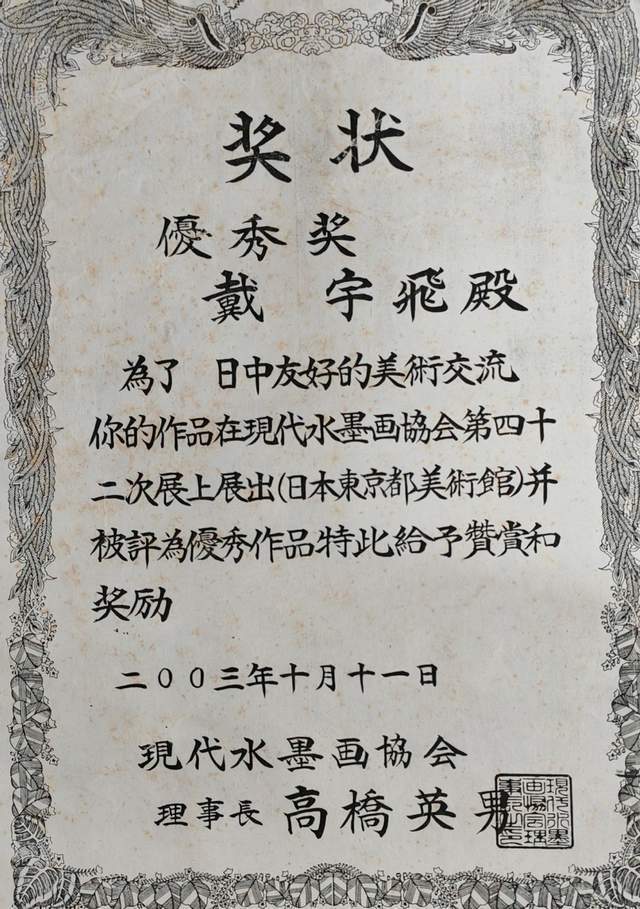 奖状
優秀奖
戴 宇飛殿
為了 日中友好的美術交流
你的作品在現代水墨画協会第四十
二次展上展出(日本東京都美術館)并
被評為優秀作品特此給予贊賞和
奖励
二〇〇三年十月十一日
現代水墨画協会
理事長 高橋英男